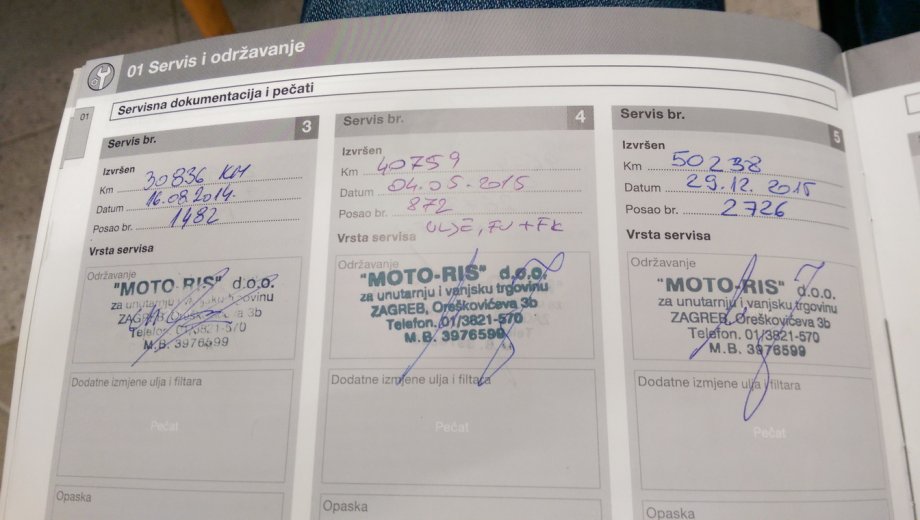 01 Servis i održavanje
01
Servisna dokumentacija i pečati
Servis br. 3
Izvršen
Km 30836 KM
Datum 16.08.2014.
Posao br. 1482
Vrsta servisa
Održavanje
"MOTO-RIS" d.o.o.
za unutarnju i vanjsku trgovinu
ZAGREB, Oreškovićeva 3b
Telefon. 01/3821-570
M.B. 3976599
Dodatne izmjene ulja i filtara
Pečat
Opaska
Servis br. 4
Izvršen
Km 40759
Datum 04.05.2015
Posao br. 872
Vrsta servisa ULJE, FU + FK
Održavanje
"MOTO-RIS" d.o.o.
za unutarnju i vanjsku trgovinu
ZAGREB, Oreškovićeva 3b
Telefon. 01/3821-570
M.B. 3976599
Dodatne izmjene ulja i filtara
Pečat
Opaska
Servis br. 5
Izvršen
Km 50238
Datum 29.12.2015
Posao br. 2726
Vrsta servisa
Održavanje
"MOTO-RIS" d.o.o.
za unutarnju i vanjsku trgovinu
ZAGREB, Oreškovićeva 3b
Telefon. 01/3821-570
M.B. 3976599
Dodatne izmjene ulja i filtara
Pečat
Opaska